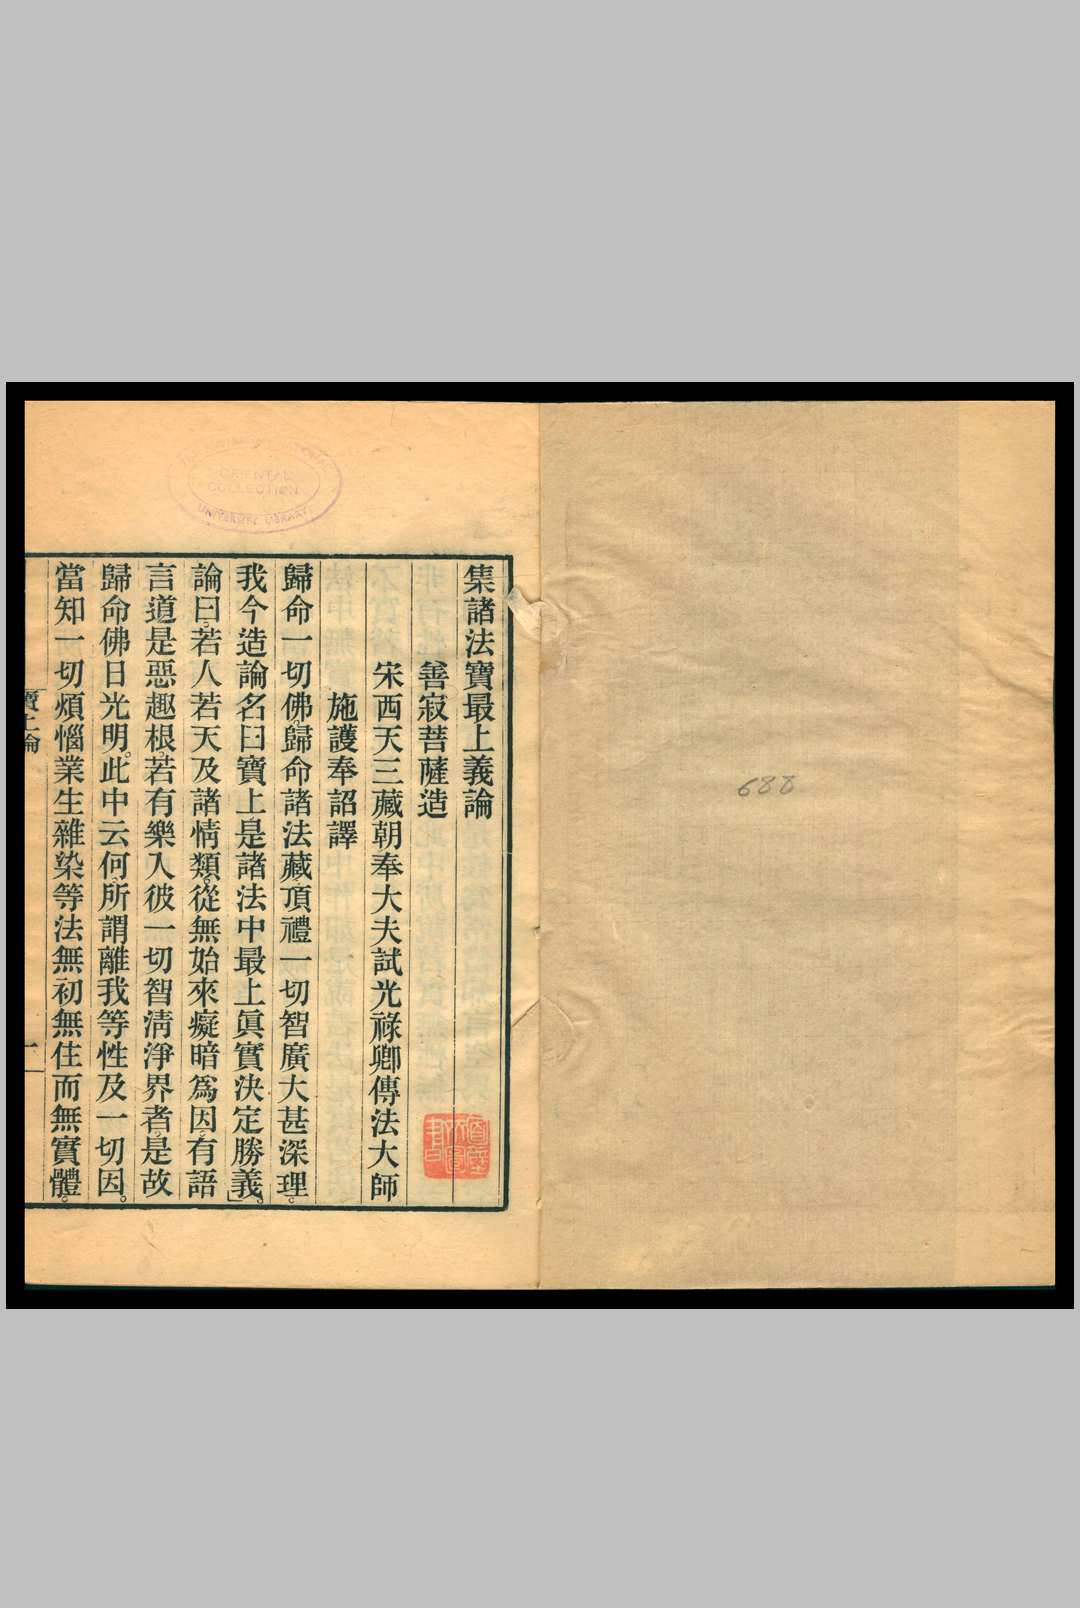 688
ORIENTAL
COLLECTION
UNIVERSITY LIBRARY
集諸法寶最上義論
善寂菩薩造
宋西天三藏朝奉大夫試光祿卿傳法大師
施護奉詔譯
歸命一切佛。歸命諸法藏。頂禮一切智廣大甚深理。
我今造論名曰寶上是諸法中最上眞實決定勝義」。
論曰。若人若天及諸情類。從無始來癡暗爲因。有語
言道是惡趣根。若有樂入彼一切智淸淨界者。是故
歸命佛日光明。此中云何。所謂離我等性及一切因。
當知一切煩惱業生雜染等法無初無住而無實體。
寶上論
一